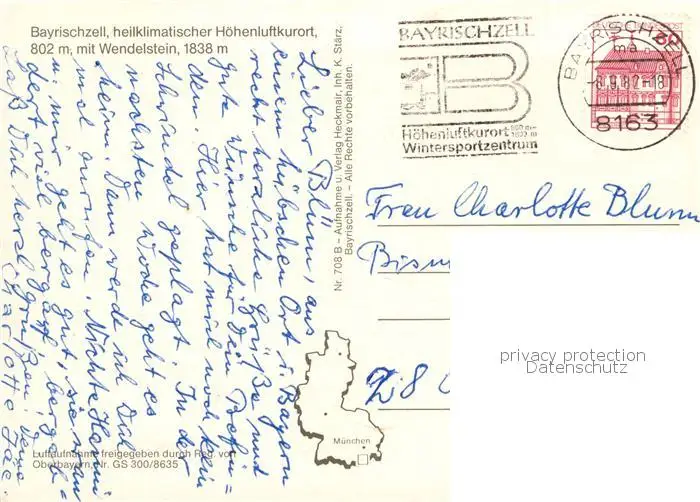 Bayrischzell, heilklimatischer Höhenluftkurort,
802 m, mit Wendelstein, 1838 m
Lieber Blüm, aus
einem hübschen Ort i. Bayern
recht herzliche Grüße und
gute Wünsche für Dein Befin=
den. Hier hat mich noch kein
Schwindel geplagt. In der
nächsten Woche geht es
heim. Dann werde ich Dich
mal anrufen. Nichte Hanni
u. mir geht es gut, sie wan
dert viel bergauf, bergab=
Laß Dich herzl. grüßen! Deine
Charlotte
Luftaufnahme freigegeben durch Reg. von
Oberbayern, Nr. GS 300/8635
Nr. 708 B – Aufnahme u. Verlag Heckmair, Inh. K. Stärz,
Bayrischzell. – Alle Rechte vorbehalten.
München
BAYRISCHZELL
B
Höhenluftkurort 800 m-
1802 m
Wintersportzentrum
BAYRISCHZELL
ma
-8.9.82-18
8163
Frau Charlotte Blum
Bism
28
privacy protection
Datenschutz